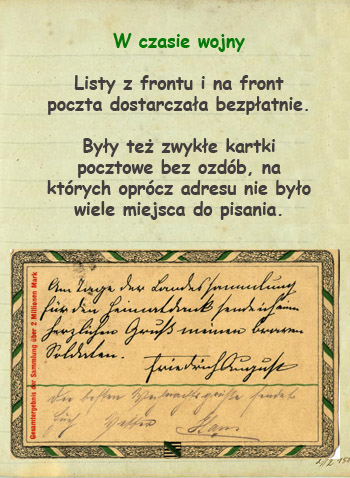 W czasie wojny
Listy z frontu i na front
poczta dostarczała bezpłatnie.
Były też zwykłe kartki
pocztowe bez ozdób, na
których oprócz adresu nie było
wiele miejsca do pisania.
Gesamtergebnis der Sammlung über 2 Millionen Mark
Am Tage der Landessammlung
für den Heimatdank sende ich einen
herzlichen Gruß meinen braven
Soldaten.
Friedrich August
Die besten Weihnachtsgrüße sendet